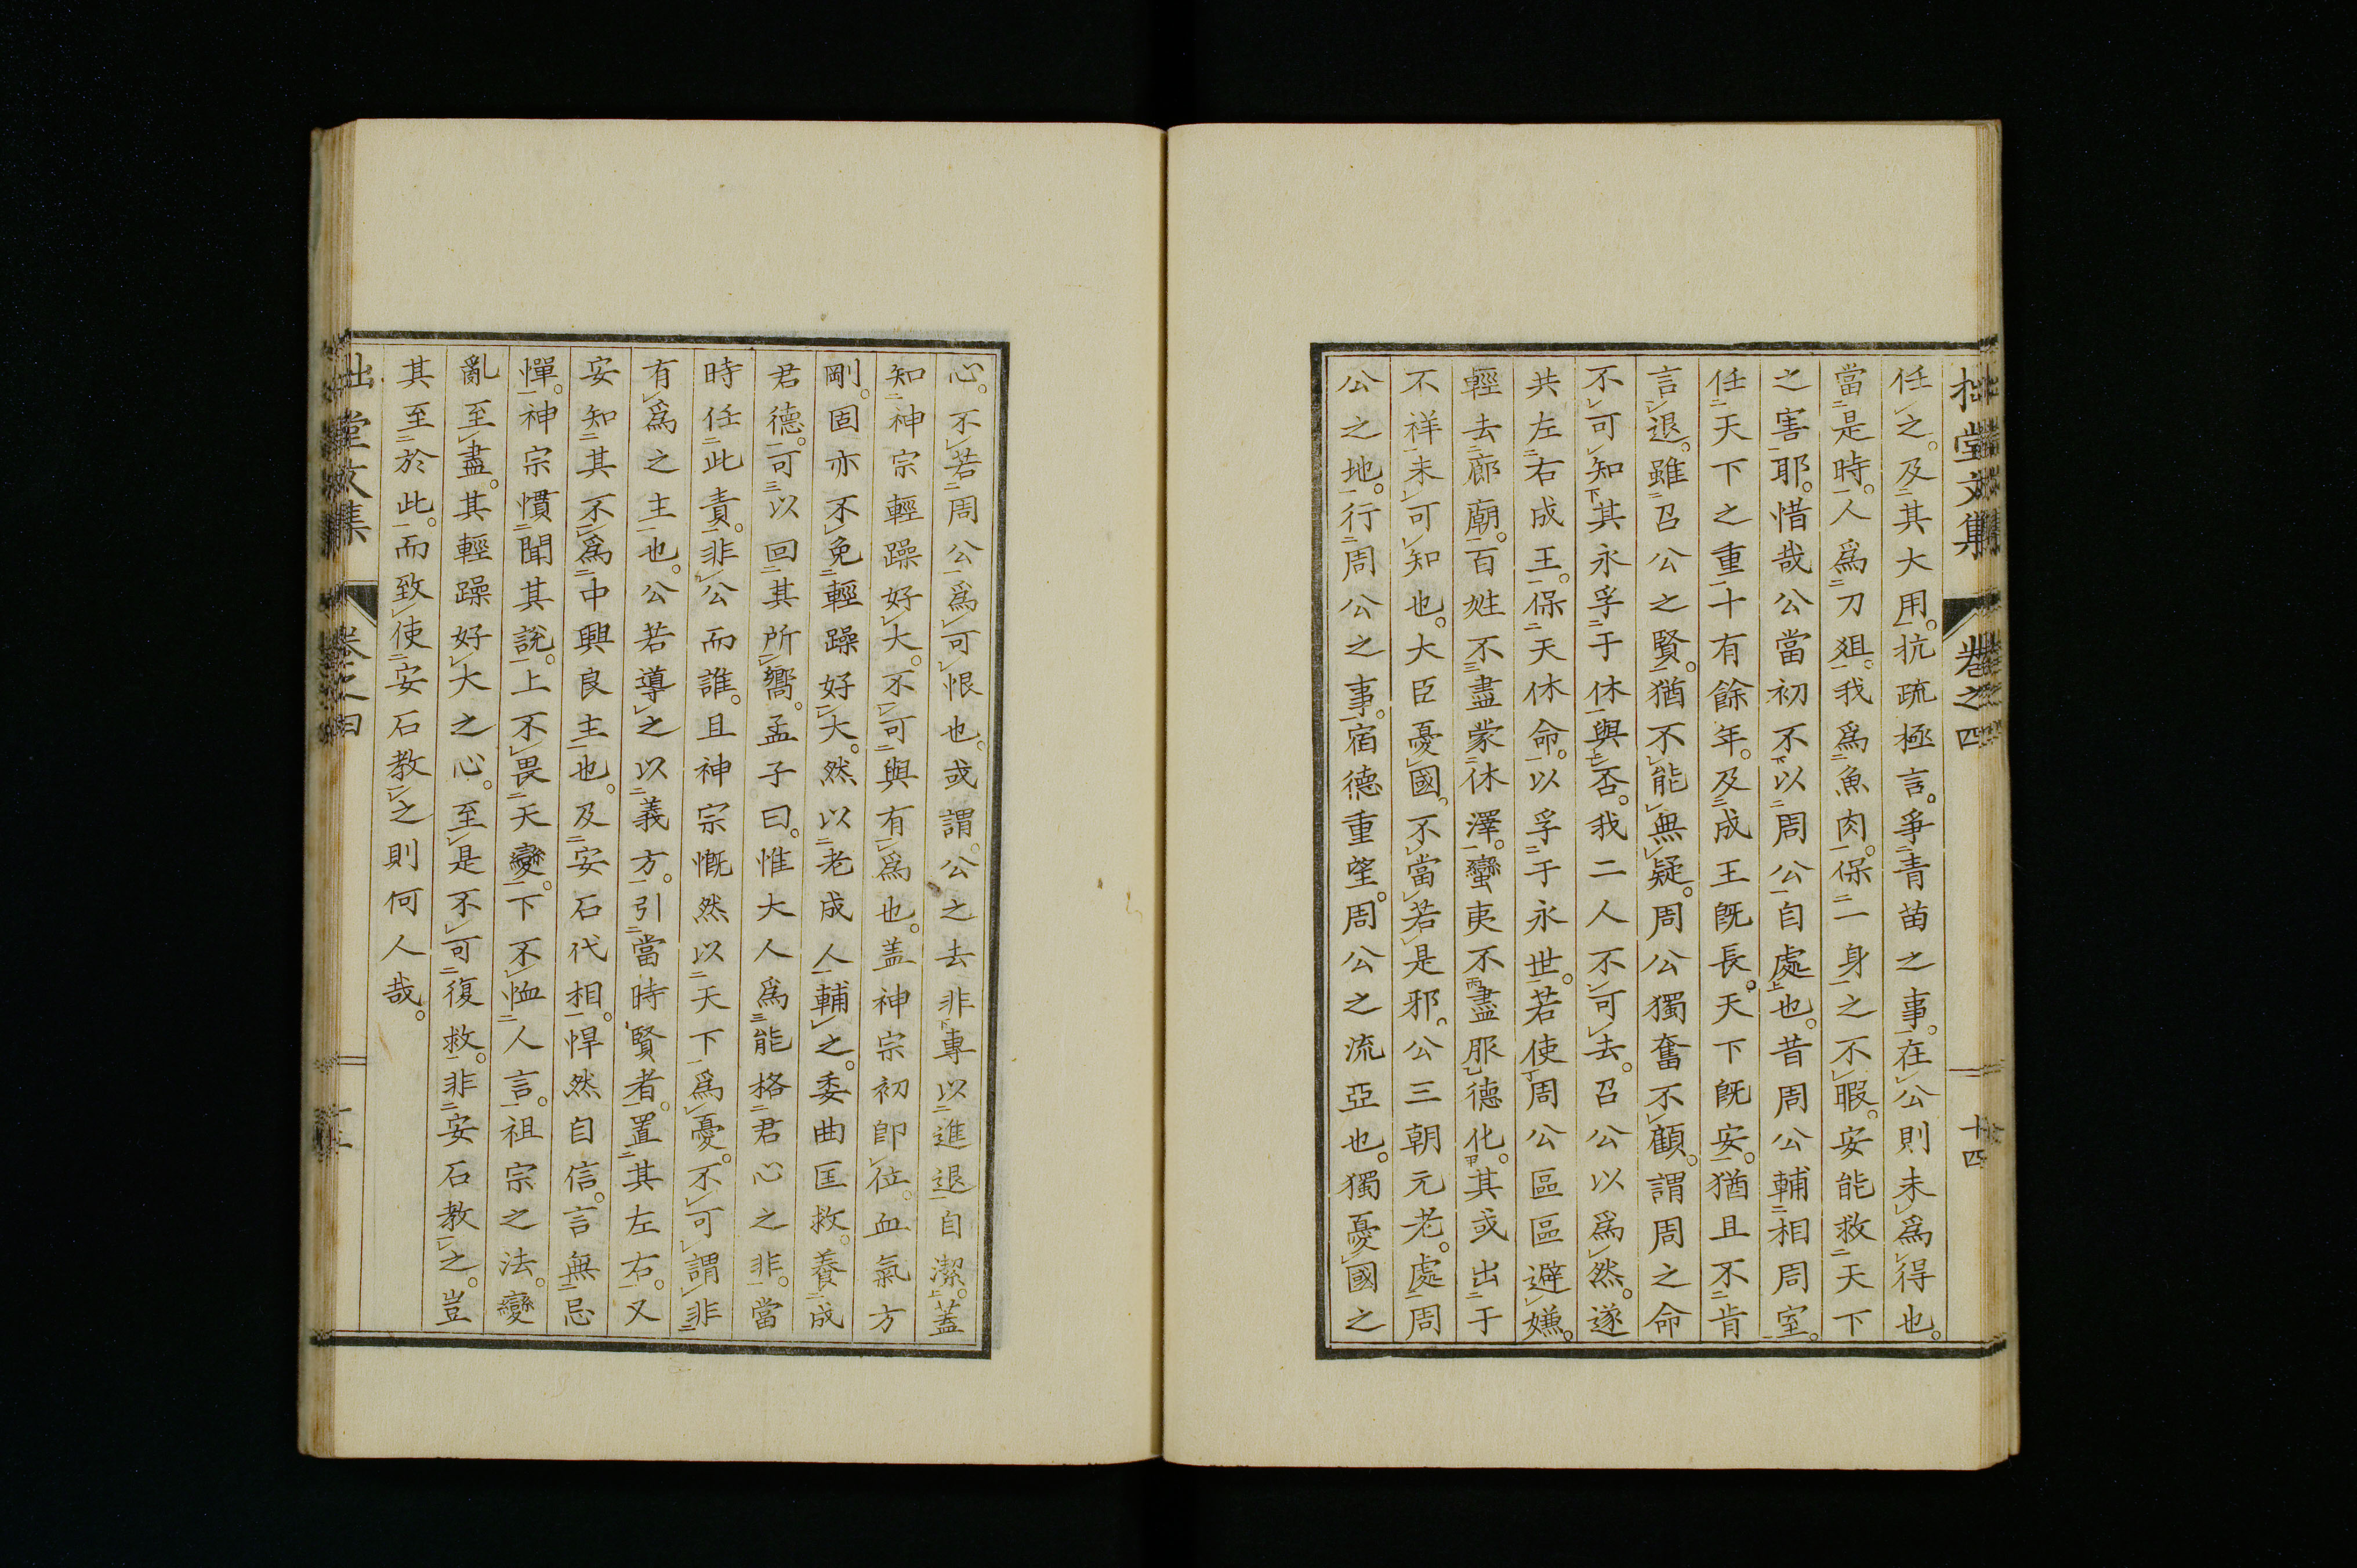 拙堂文集 卷之四 十四
任之。及其大用。抗疏極言。爭青苗之事。在公則未爲得也。
當是時。人爲刀俎。我爲魚肉。保一身之不暇。安能救天下
之害耶。惜哉公當初不以周公自處也。昔周公輔相周室。
任天下之重十有餘年。及成王既長。天下既安。猶且不肯
言退。雖召公之賢。猶不能無疑。周公獨奮不顧。謂周之命
不可知其永孚于休與否。我二人不可去。召公以爲然。遂
共左右成王。保天休命。以孚于永世。若使周公區區避嫌。
輕去廊廟。百姓不盡蒙休澤。蠻夷不盡服德化。其或出于
不祥未可知也。大臣憂國。不當若是邪。公三朝元老。處周
公之地。行周公之事。宿德重望。周公之流亞也。獨憂國之
心。不若周公爲可恨也。或謂。公之去非專以進退自潔。蓋
知神宗輕躁好大。不可與有爲也。盖神宗初卽位。血氣方
剛。固亦不免輕躁好大。然以老成人輔之。委曲匡救。養成
君德。可以回其所嚮。孟子曰。惟大人爲能格君心之非。當
時任此責。非公而誰。且神宗慨然以天下爲憂。不可謂非
有爲之主也。公若導之以義方。引當時賢者。置其左右。又
安知其不爲中興良主也。及安石代相。悍然自信。言無忌
憚。神宗慣聞其說。上不畏天變。下不恤人言。祖宗之法。變
亂至盡。其輕躁好大之心。至是不可復救。非安石教之。豈
其至於此。而致使安石教之則何人哉。
拙堂文集 卷之四